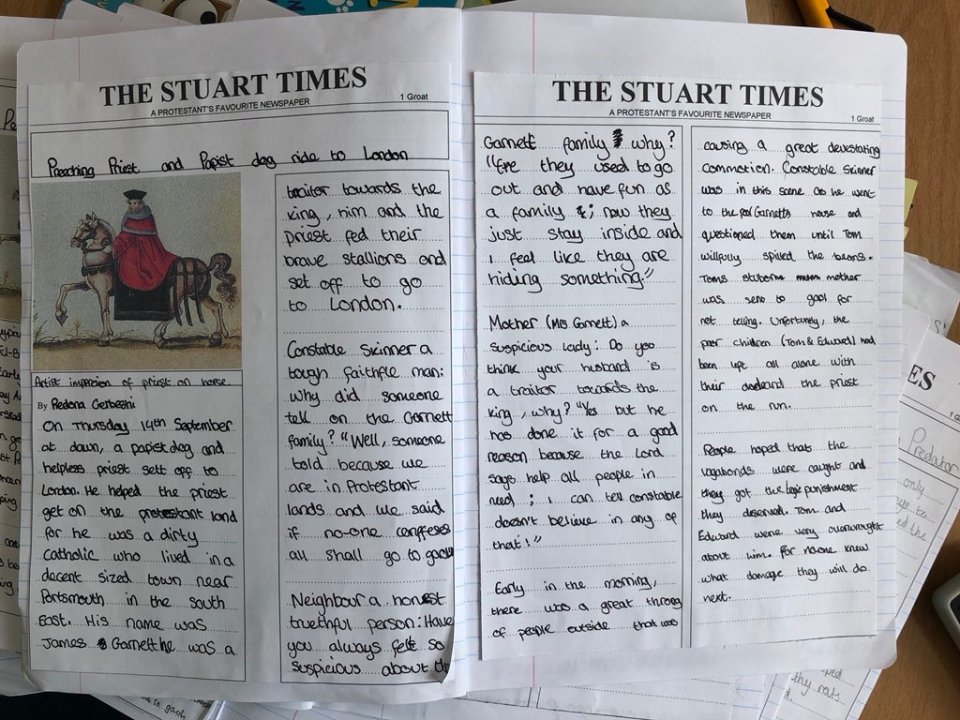 THE STUART TIMES
A PROTESTANT'S FAVOURITE NEWSPAPER
1 Groat
Preaching Priest and Papist dog ride to London
Artist impersion of priest on horse
By Redona
On Thursday 14th September
at dawn, a papist dog and
helpless priest sett off to
London. He helped the priest
get on the protestant land
for he was a dirty
Catholic who lived in a
decent sized town near
Portsmouth in the south
East. His name was
James Garnett he was a
traitor towards the
king, him and the
priest fed their
brave stallions and
set off to go
to London.
Constable Skinner a
tough faithfle man:
why did someone
tell on the Garnett
family? "Well, someone
told because we
are in Protestant
lands and we said
if no-one confeses
all shall go to
Neighbour a honest
truethful person: Have
you always felt so
suspicious about
THE STUART TIMES
A PROTESTANT'S FAVOURITE NEWSPAPER
1 Groat
Garnett family why?
they used to go
out and have fun as
a family ; now they
just stay inside and
I feel like they are
hiding something"
Mother (Mrs Garnett) a
suspicious lady: Do you
think your husband is
a traitor towards the
king, why? "Yes but he
has done it for a good
reason because the Lord
says help all people in
need ; I can tell constable
doesn't believe in any of
that!"
Early in the morning,
there was a great throng
of people outside that was
causing a great devastating
commotion. Constable Skinner
was in this scene as he went
to the Garnetts house and
questioned them until Tom
willfuly spilled the beans.
Toms mother
was sent to gaol for
not telling. Unfortunetly, the
poor children (Tom & Edward) had
been left all alone with
their dad and the priest
on the run.
People hoped that the
vagabonds were caught and
they got the punishment
they deserved. Tom and
Edward were very overwrought
about him. For no-one knew
what damage they will do
next.
ES
Predator
only